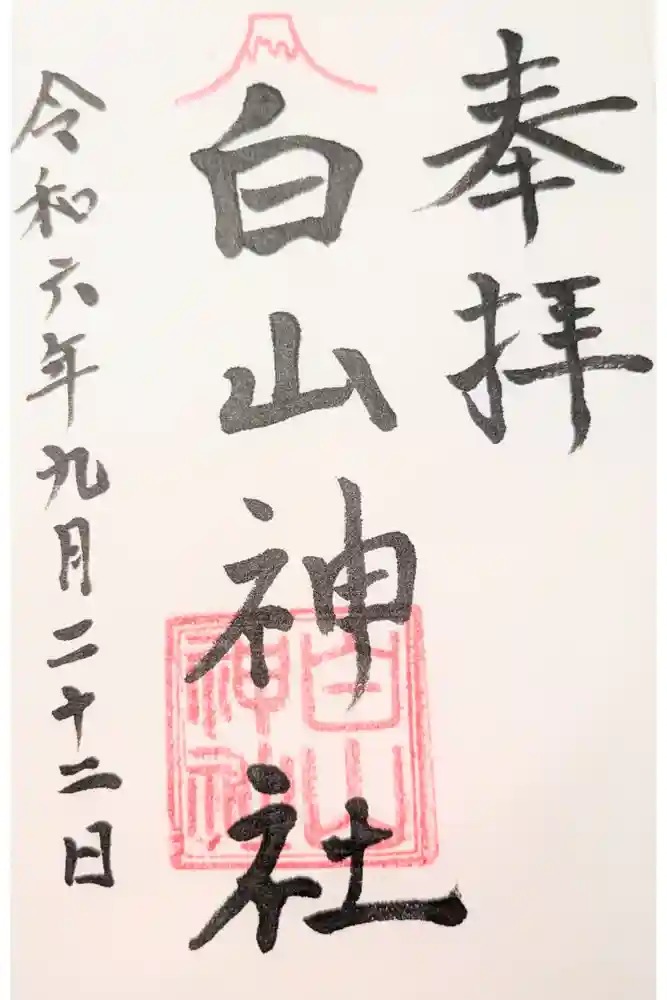 奉拝
白山神社
白山
神社
令和六年九月二十二日